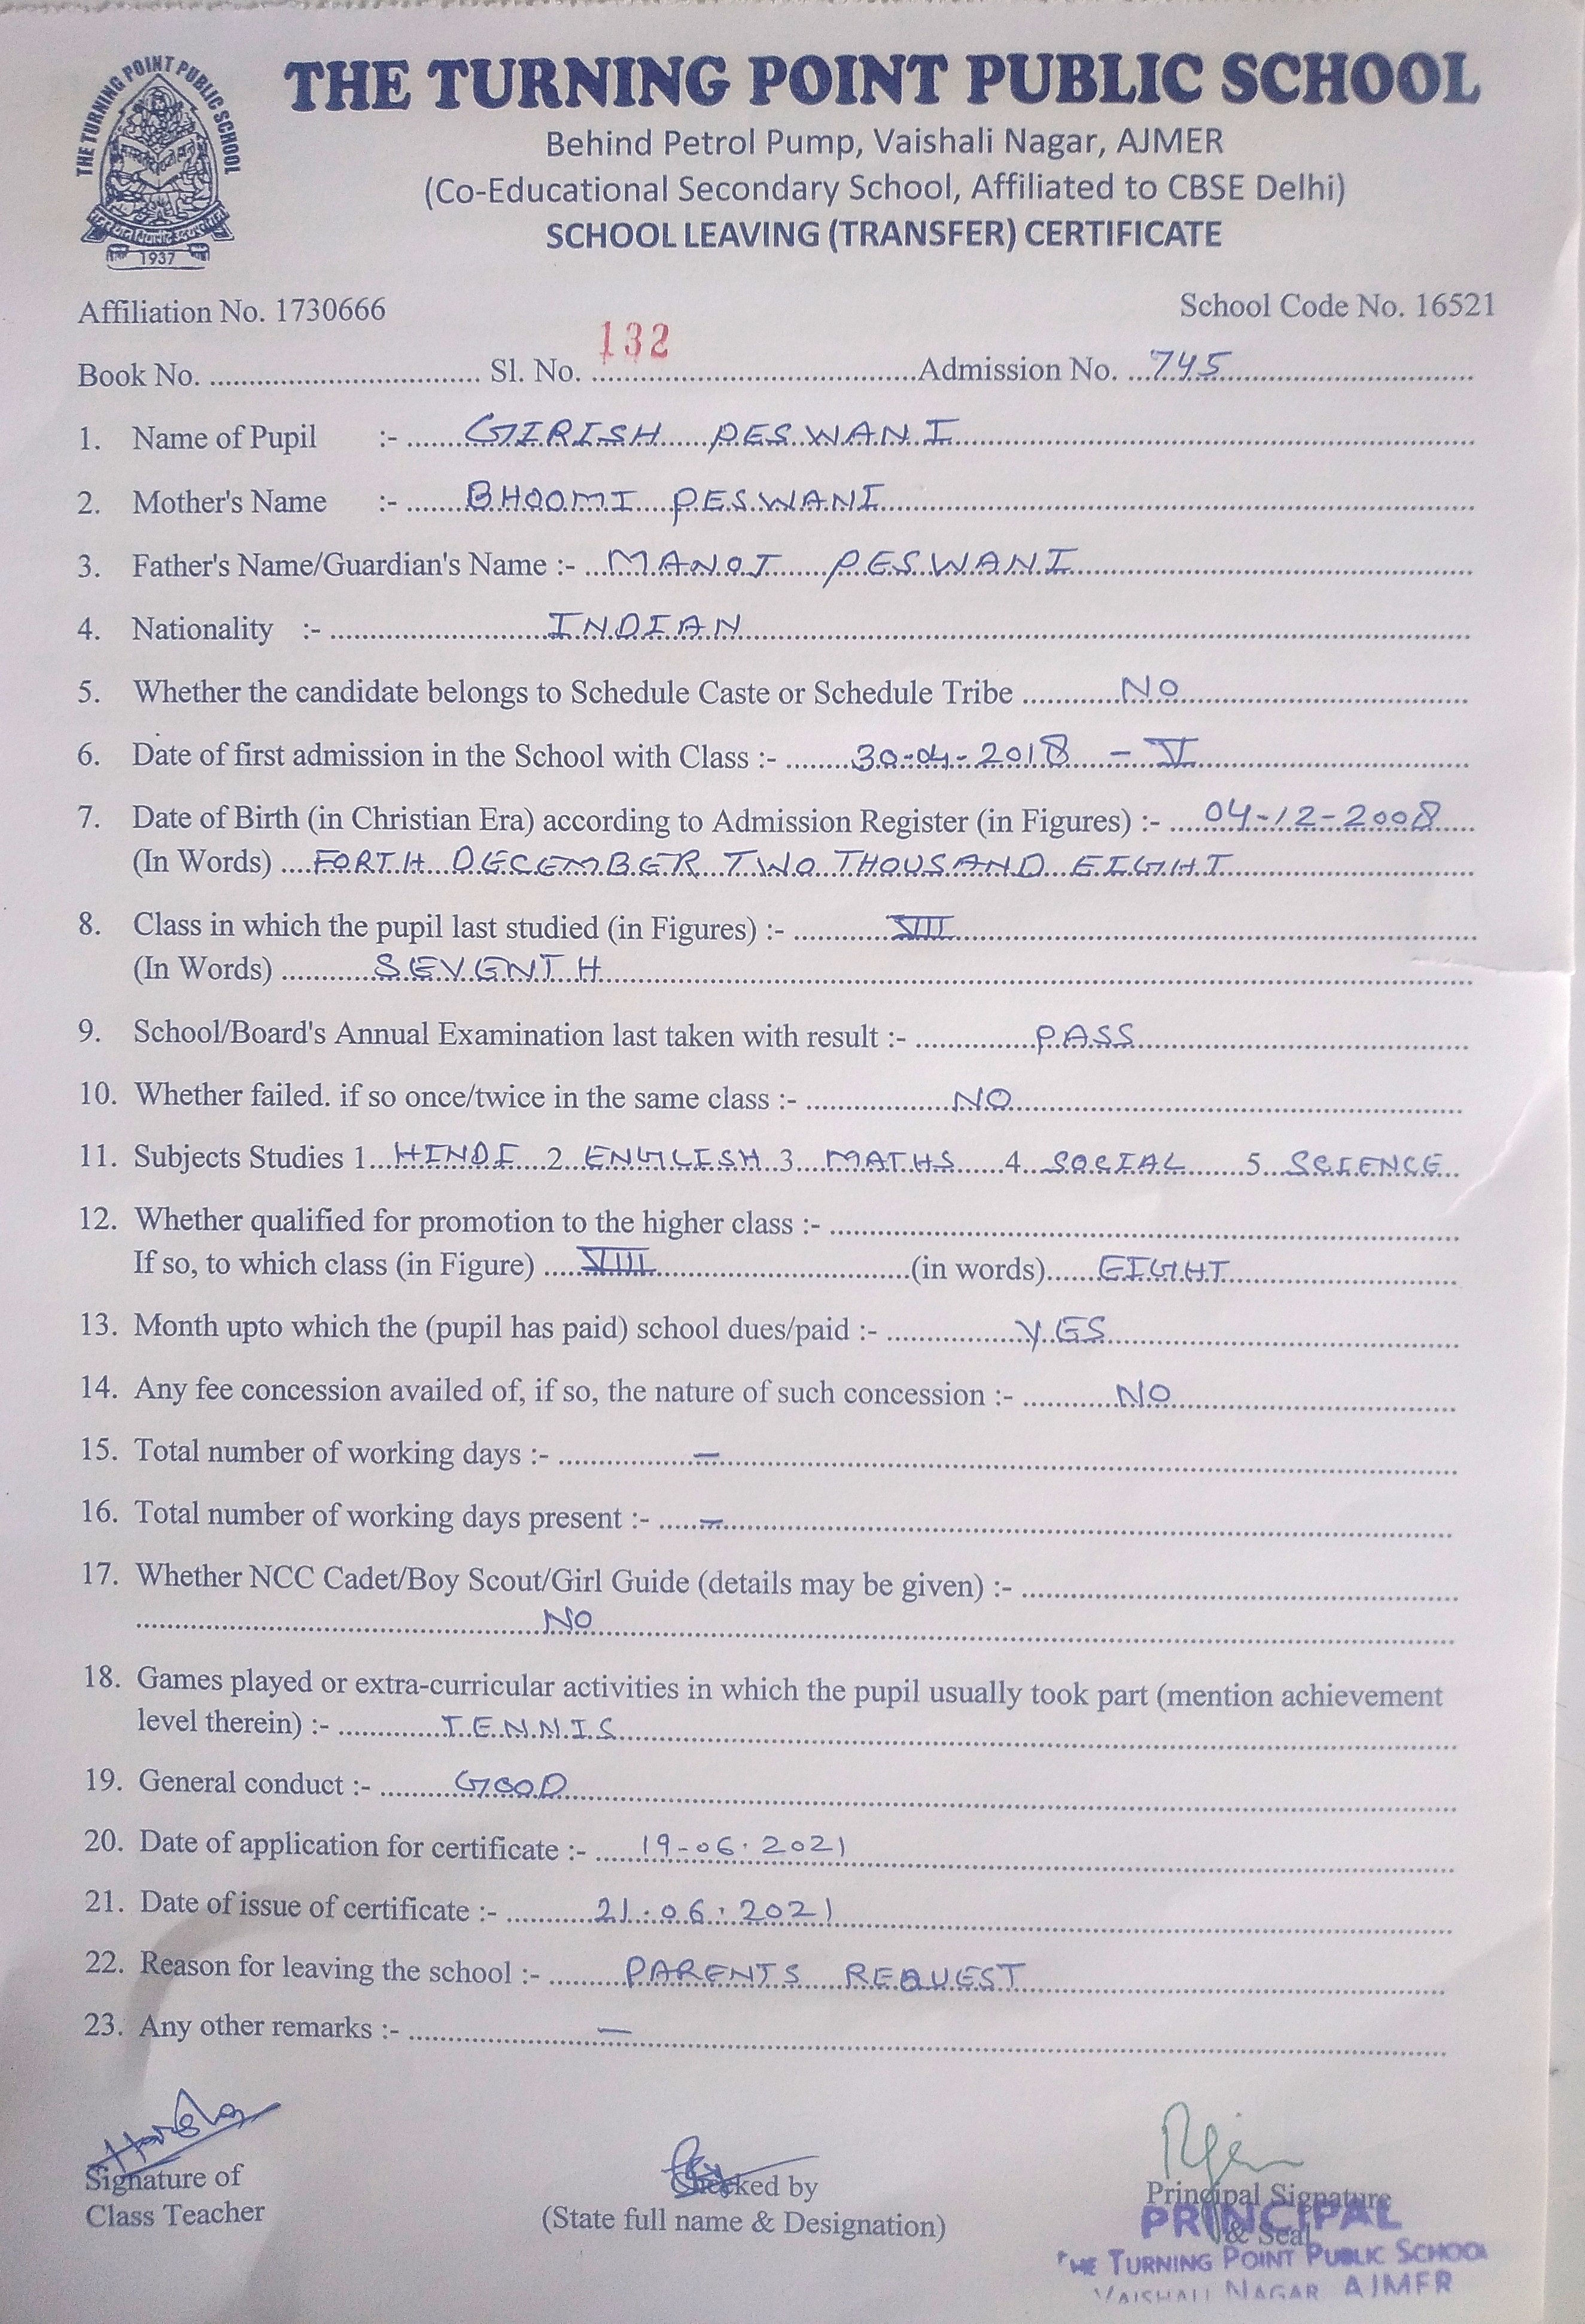 THE TURNING POINT PUBLIC SCHOOL
1937
THE TURNING POINT PUBLIC SCHOOL
Behind Petrol Pump, Vaishali Nagar, AJMER
(Co-Educational Secondary School, Affiliated to CBSE Delhi)
SCHOOL LEAVING (TRANSFER) CERTIFICATE
Affiliation No. 1730666 School Code No. 16521
Book No. Sl. No. 132 Admission No. 745
1. Name of Pupil :- GIRISH PESWANI
2. Mother's Name :- BHOOMI PESWANI
3. Father's Name/Guardian's Name :- MANOJ PESWANI
4. Nationality :- INDIAN
5. Whether the candidate belongs to Schedule Caste or Schedule Tribe NO
6. Date of first admission in the School with Class :- 30-04-2018 - V
7. Date of Birth (in Christian Era) according to Admission Register (in Figures) :- 04-12-2008
(In Words) FORTH DECEMBER TWO THOUSAND EIGHT
8. Class in which the pupil last studied (in Figures) :- VII
(In Words) SEVENTH
9. School/Board's Annual Examination last taken with result :- PASS
10. Whether failed. if so once/twice in the same class :- NO
11. Subjects Studies 1 HINDI 2 ENGLISH 3 MATHS 4 SOCIAL 5 SCIENCE
12. Whether qualified for promotion to the higher class :-
If so, to which class (in Figure) VIII (in words) EIGHT
13. Month upto which the (pupil has paid) school dues/paid :- YES
14. Any fee concession availed of, if so, the nature of such concession :- NO
15. Total number of working days :- -
16. Total number of working days present :- -
17. Whether NCC Cadet/Boy Scout/Girl Guide (details may be given) :-
NO
18. Games played or extra-curricular activities in which the pupil usually took part (mention achievement
level therein) :- TENNIS
19. General conduct :- GOOD
20. Date of application for certificate :- 19-06.2021
21. Date of issue of certificate :- 21.06.2021
22. Reason for leaving the school :- PARENTS REQUEST
23. Any other remarks :- -
Signature of Checked by Principal Signature
Class Teacher (State full name & Designation) & Seal
PRINCIPAL
THE TURNING POINT PUBLIC SCHOOL
VAISHALI NAGAR AJMER